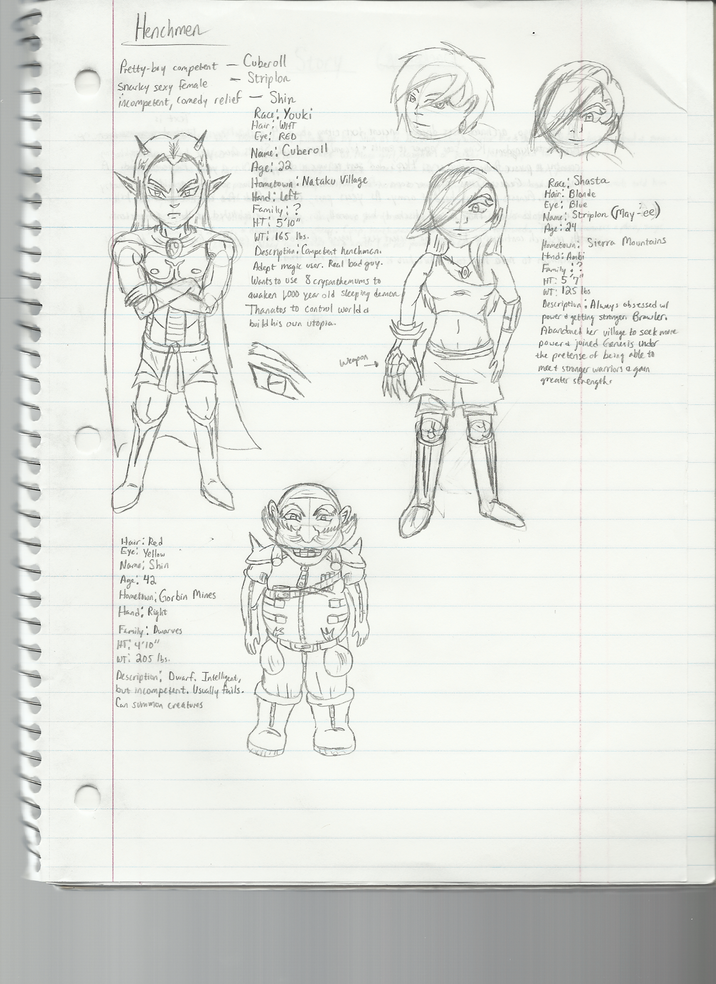 Henchmen
Pretty-boy competent — Cuberoll
Snarky sexy female — Striplon
incompetent, comedy relief — Shin
Race: Youki
Hair: WHT
Eye: RED
Name: Cuberoll
Age: 22
Hometown: Nataku Village
Hand: Left
Family: ?
HT: 5'10"
WT: 165 lbs.
Description: Competent henchman.
Adept magic user. Real bad guy.
Wants to use 8 crysanthemums to
awaken 1,000 year old sleeping demon
Thanatos to control world &
build his own utopia.
Weapon
Race: Shasta
Hair: Blonde
Eye: Blue
Name: Striplon (May-ee)
Age: 24
Hometown: Sierra Mountains
Hand: Ambi
Family: ?
HT: 5'7"
WT: 125 lbs
Description: Always obsessed w/
power & getting stronger. Brawler.
Abandoned her village to seek more
power & joined Genesis under
the pretense of being able to
meet stronger warriors & gain
greater strength.
Hair: Red
Eye: Yellow
Name: Shin
Age: 42
Hometown: Gorbin Mines
Hand: Right
Family: Dwarves
HT: 4'10"
WT: 205 lbs.
Description: Dwarf. Intelligent,
but incompetent. Usually fails.
Can summon creatures